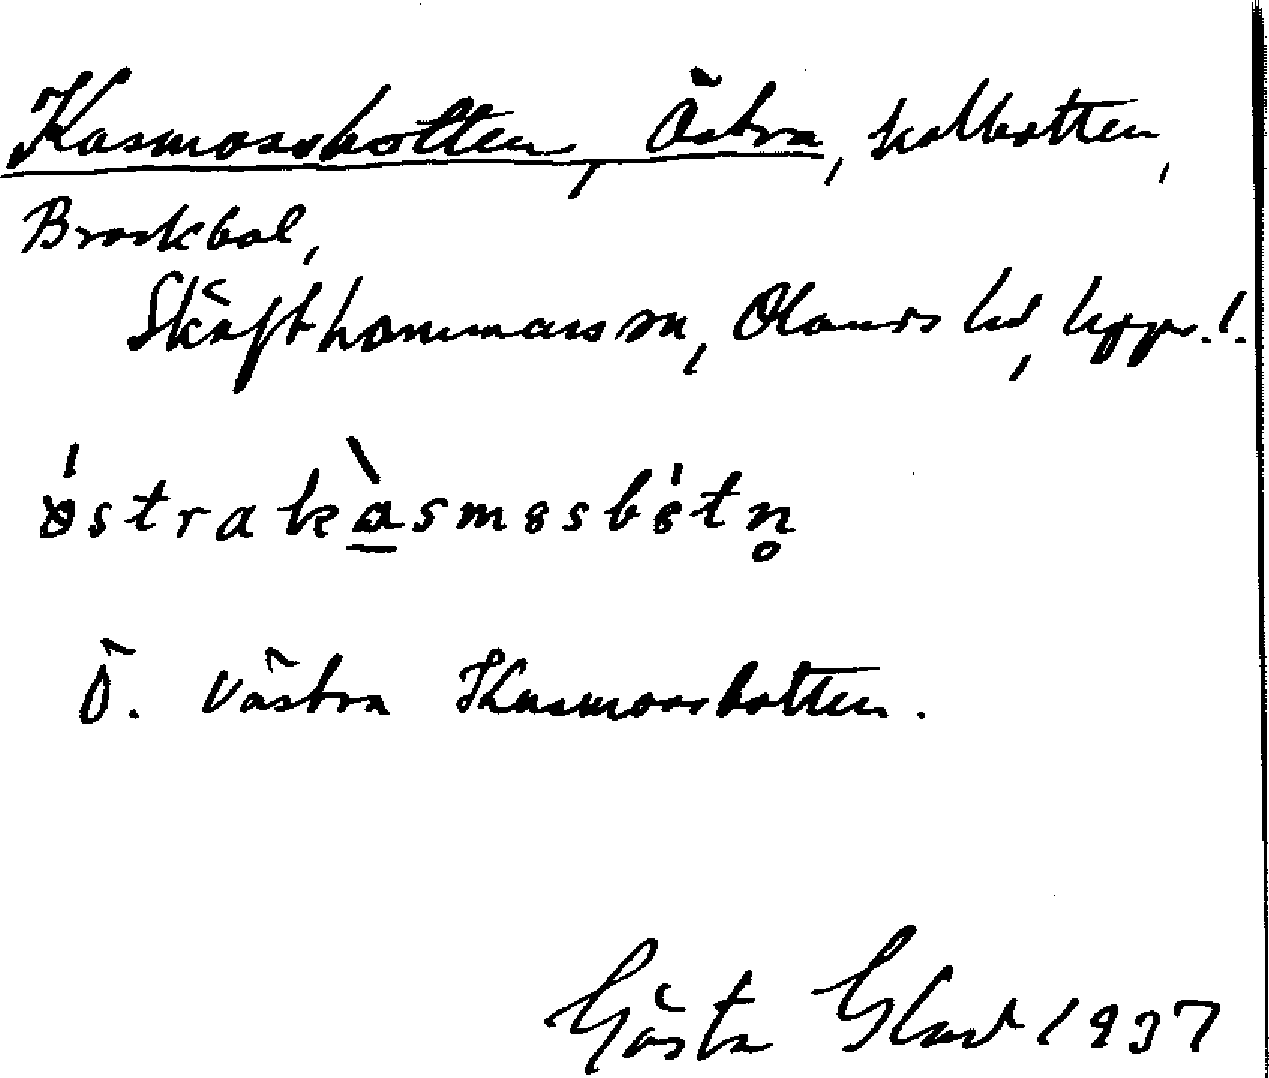 Kasmossbotten, Östra, kolbotten,
Brockbol,
Skäfthammars sn, Olands hd, Uppl.
östrakasmosbotn
Ö. Västra Kasmossbotten.
Gösta Glad 1937